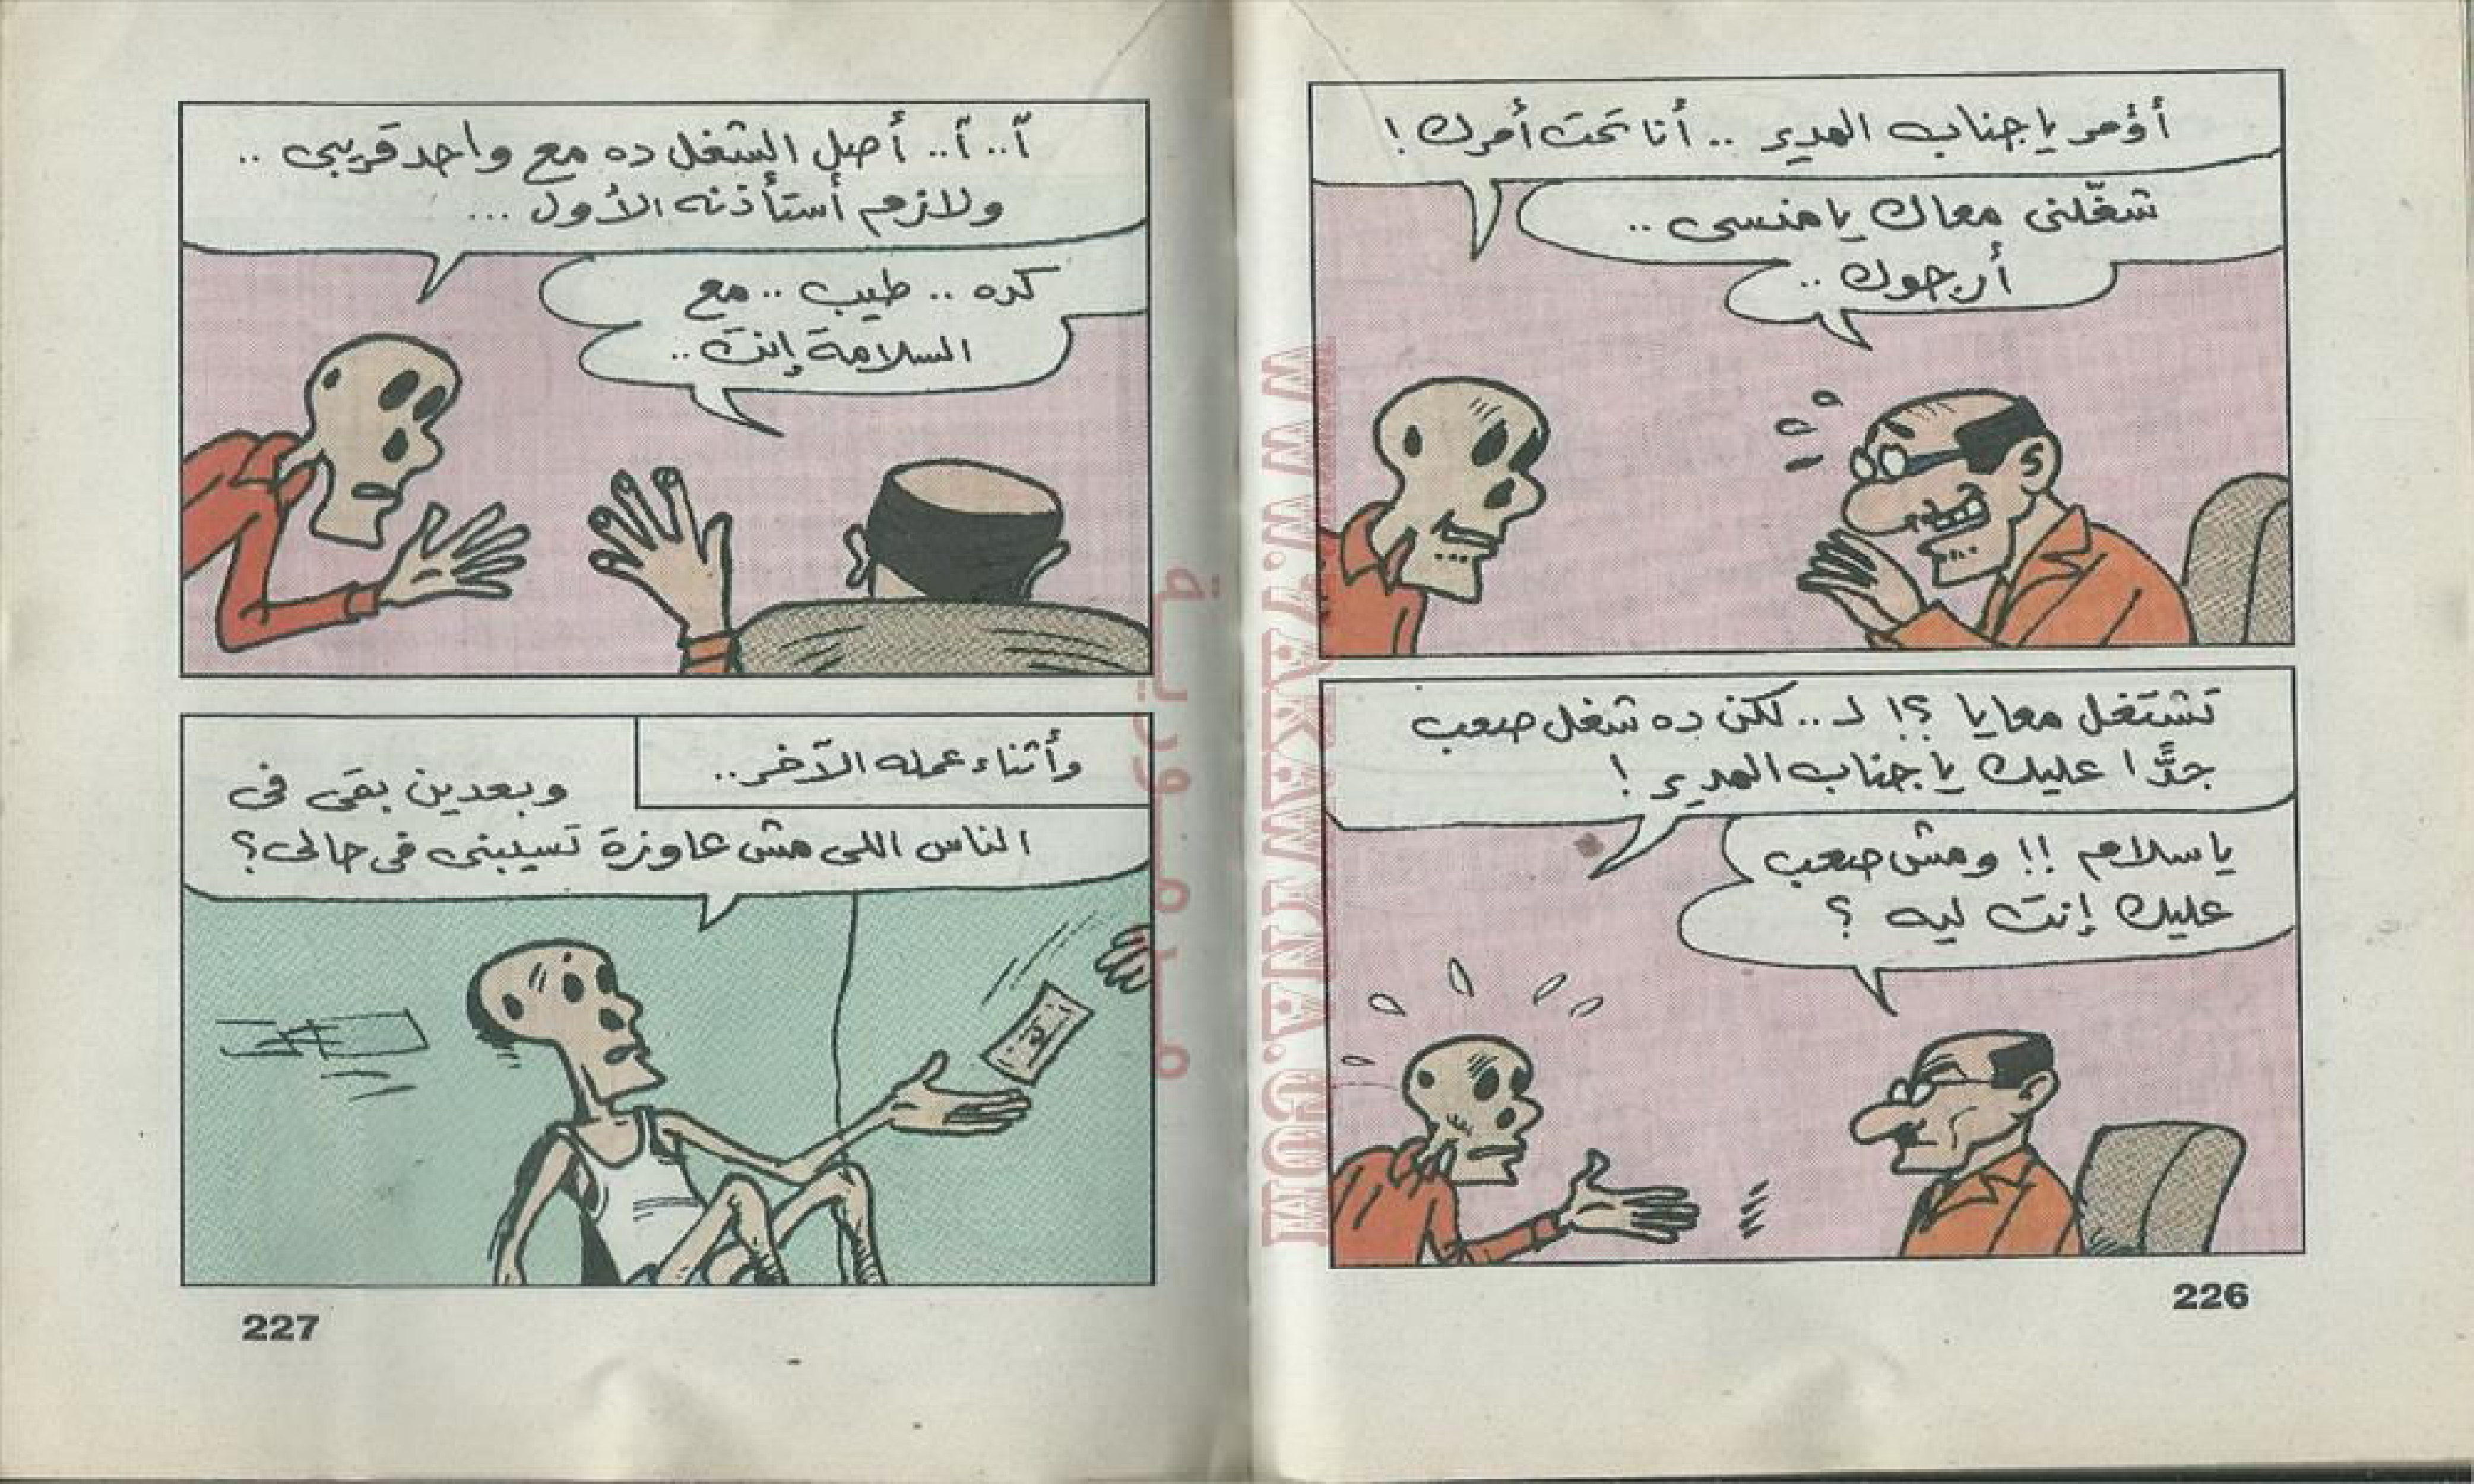 أؤمر يا جناب المدير .. أنا تحت أمرك !
شغّلنى معاك يا منسى ..
أرجوك ..
تشتغل معايا ؟! لـ .. لكن ده شغل صعب
جدًّا عليك يا جناب المدير !
يا سلام !! ومش صعب
عليك إنت ليه ؟
226
آ .. آ .. أصل الشغل ده مع واحد قريبى ..
ولازم أستأذنه الأول ...
كده .. طيب .. مع
السلامة إنت ..
وأثناء عمله الآخر ..
وبعدين بقى فى
الناس اللى مش عاوزة تسيبنى فى حالى ؟
227
WWW.VAKAWEYINA.COM